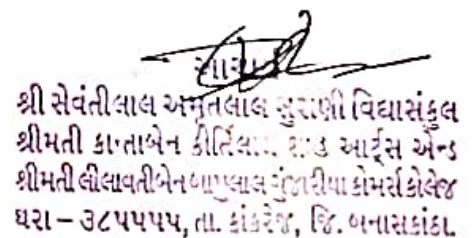 આચાર્ય
શ્રી સેવંતીલાલ અમૃતલાલ સુરાણી વિદ્યાસંકુલ
શ્રીમતી કાન્તાબેન કીર્તિલાલ શાહ આર્ટ્સ એન્ડ
શ્રીમતી લીલાવતીબેન બાપુલાલ ગુંજારીયા કોમર્સ કોલેજ
થરા – ૩૮૫૫૫૫, તા. કાંકરેજ, જિ. બનાસકાંઠા.